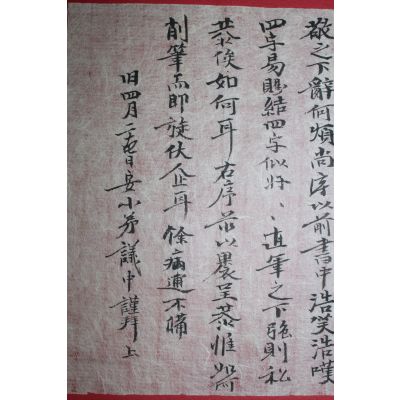 敬之下辭何煩尚序以前書中浩笑浩嘆
四字易賜結四字似好、直筆之下強則私
恭俟如何耳右序並以裹呈恭惟
削筆而即旋伏企耳餘病逋不備
旧四月二十七日安小弟議中謹拜上